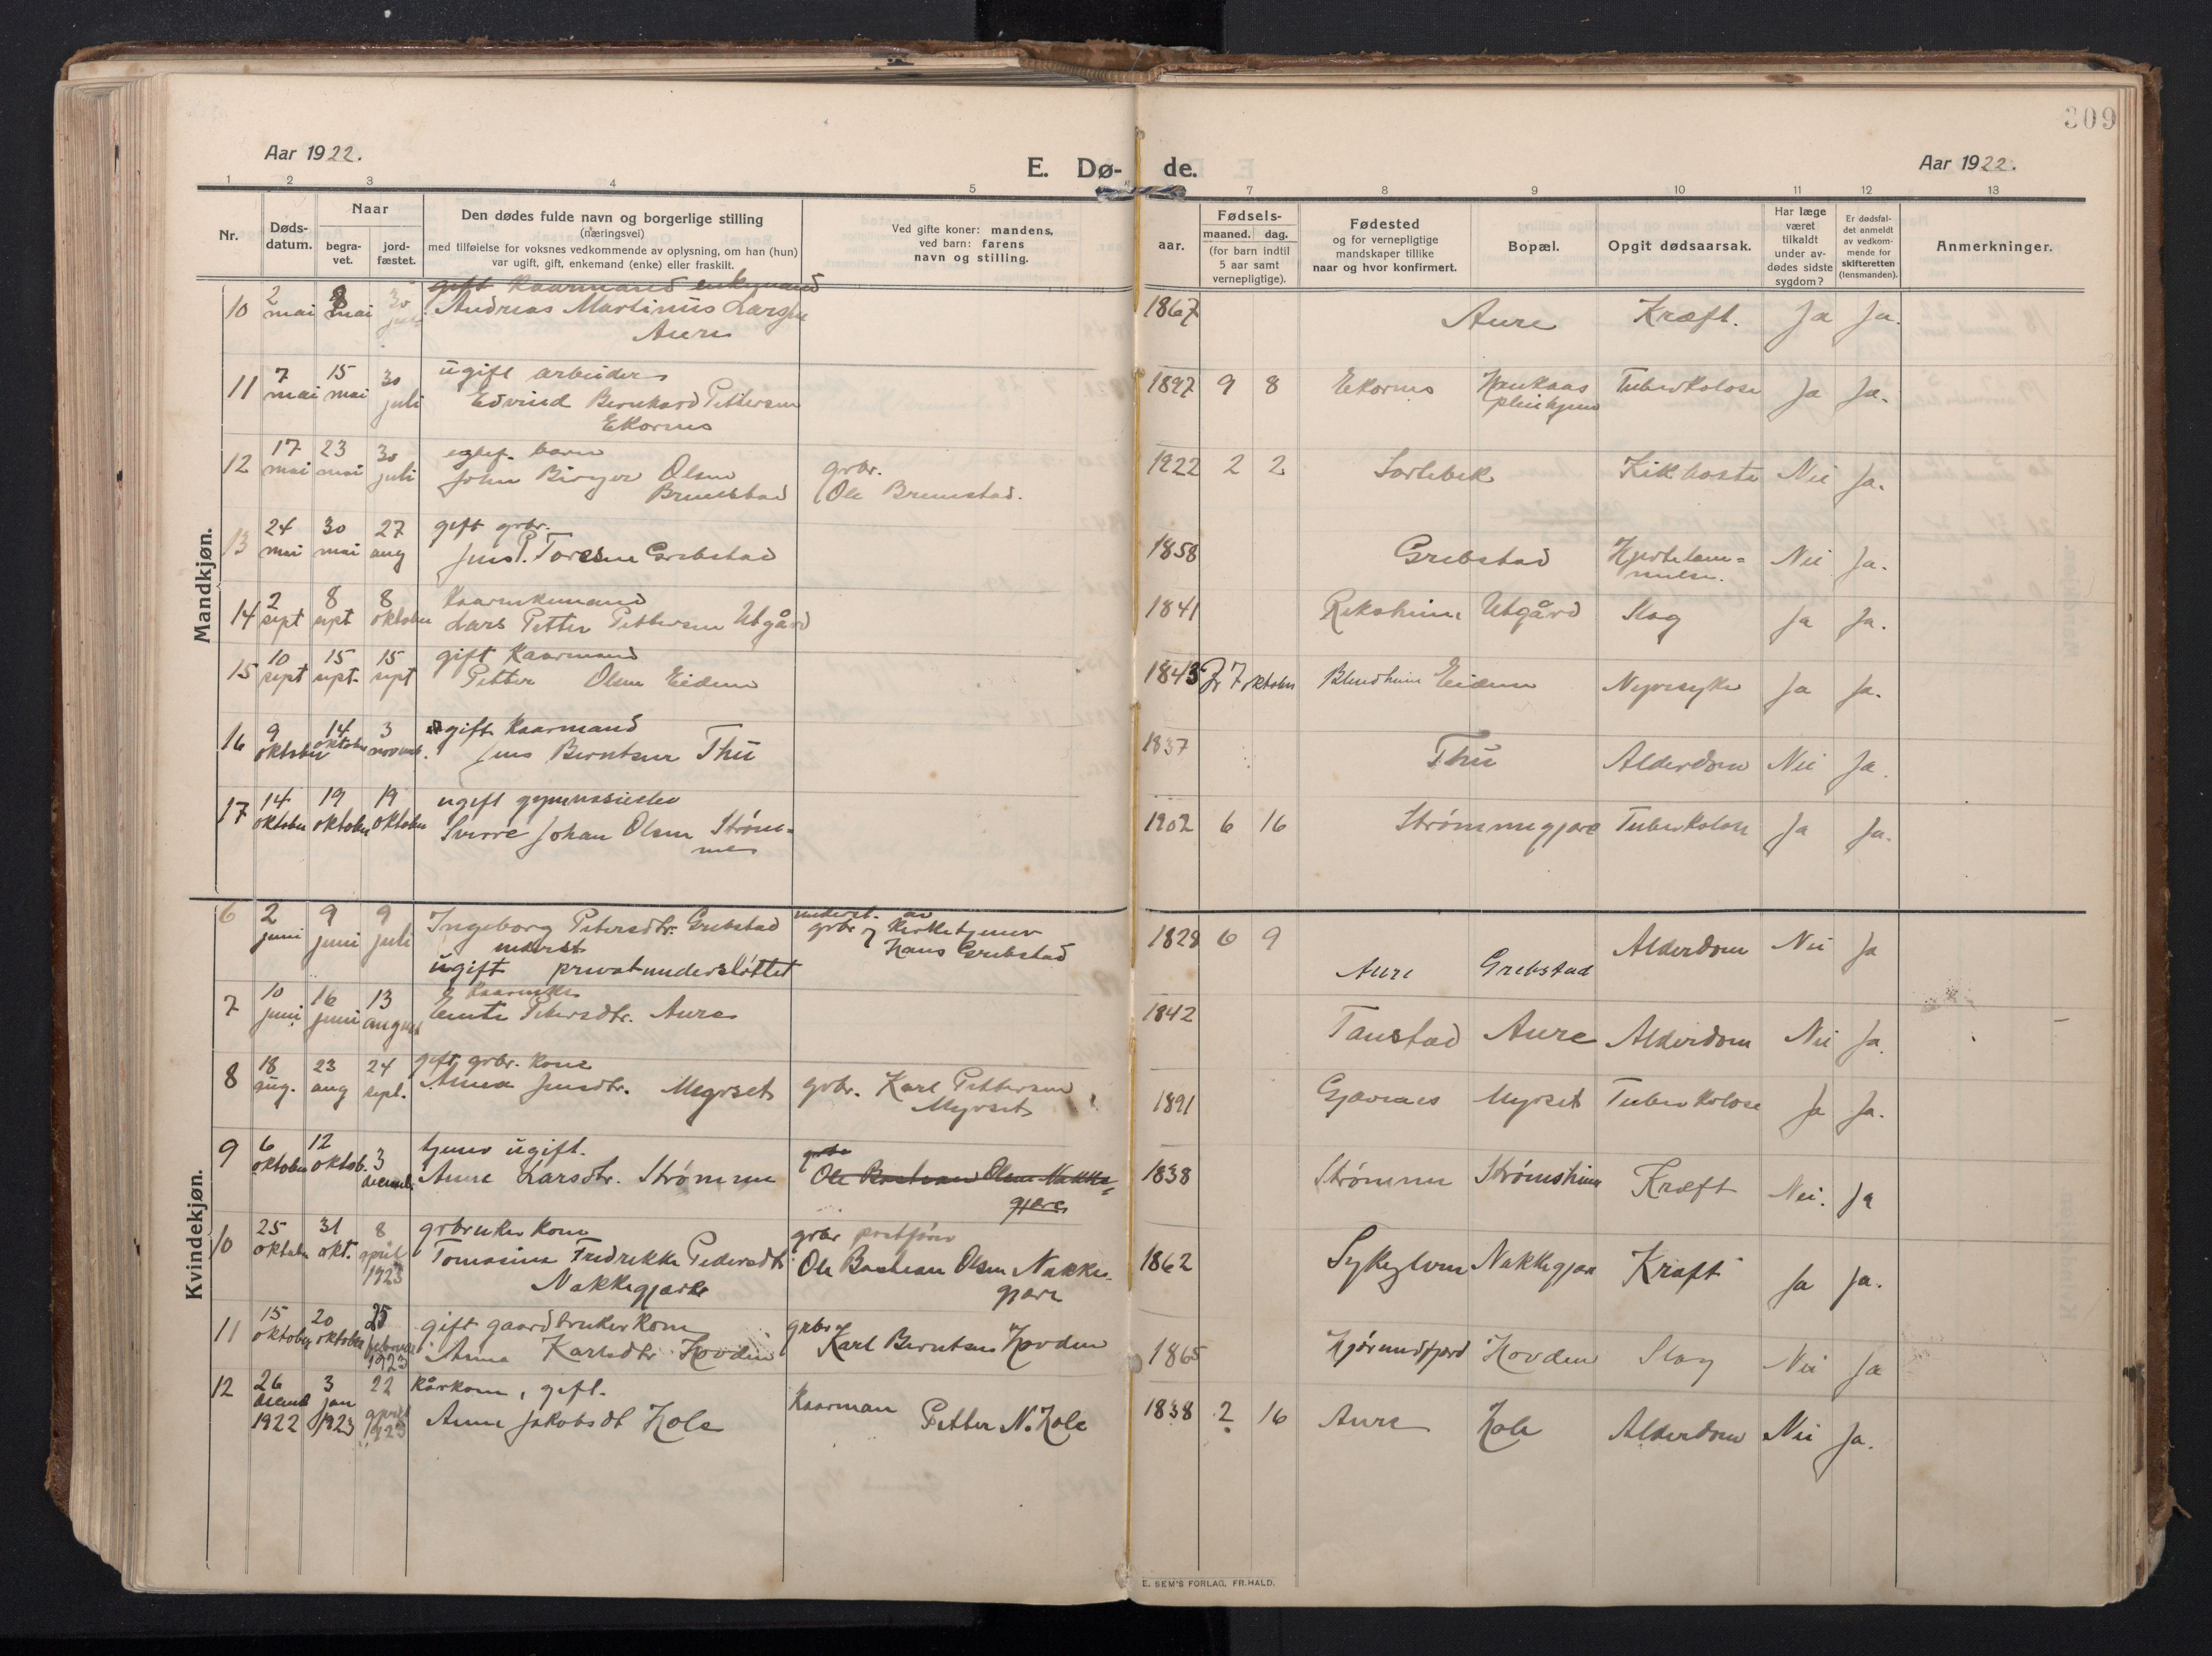 309
Aar 1922.
E. Dø- de.
Aar 1922.
1 2 3 4 5 7 8 9 10 11 12 13
Nr.
Døds-
datum.
Naar
begra-
vet.
jord-
fæstet.
Den dødes fulde navn og borgerlige stilling
(næringsvei)
med tilføielse for voksnes vedkommende av oplysning, om han (hun)
var ugift, gift, enkemand (enke) eller fraskilt.
Ved gifte koner: mandens,
ved barn: farens
navn og stilling.
Fødsels-
aar.
maaned. dag.
(for barn indtil
5 aar samt
vernepligtige).
Fødested
og for vernepligtige
mandskaper tillike
naar og hvor konfirmert.
Bopæl.
Opgit dødsaarsak.
Har læge
været
tilkaldt
under av-
dødes sidste
sygdom?
Er dødsfal-
det anmeldt
av vedkom-
mende for
skifteretten
(lensmanden).
Anmerkninger.
Mandkjøn.
gift kaarmand enkemand
10 2 mai 8 mai 30 Andreas Martinus 1867 Aure Kræft. Ja Ja.
Aure
ugift arbeider
11 7 mai 15 mai 30 juli Edvind Bernhard Pettersen 1897 9 8 Ekornes Tuberkolose Ja Ja.
Ekornes
barn
12 17 mai 23 mai 30 juli John Birger Olsen grbr. 1922 2 2 Kikhoste Nei Ja.
Brunstad Ole Brunstad.
gift grbr.
13 24 mai 30 mai 27 aug Jens P. Toresen Grebstad 1858 Grebstad Nei Ja.
14 2 sept 8 sept 8 oktober Lars Petter Pettersen Utgård 1841 Utgård Slag Ja Ja.
gift Kaarmand
15 10 sept 15 sept. 15 sept Petter Olsen Eidem 1843 7 oktober Blindheim Eidem Nyresyke Ja Ja.
gift Kaarmand
16 9 oktober 14 oktober 3 novemb. Jens Berntsen Thu 1837 Thu Alderdom Nei Ja.
ugift gymnasielev
17 14 oktober 19 oktober 19 oktober Sverre Johan Olsen Strøm- 1902 6 16 Strømmegjære Tuberkolose Ja Ja.
mes
Kvindekjøn.
6 2 juni 9 juni 9 juli Ingeborg Petersdtr. Grebstad underst. av grbr og Kirketjener 1828 6 9 Aure Grebstad Alderdom Nei Ja
underst. Hans Grebstad
ugift privatunderstøttet
7 10 juni 16 juni 13 august Petersdtr. Aure 1842 Tanstad Aure Alderdom Nei Ja.
gift grbr. kone
8 18 aug. 23 aug 24 sept. Anna Jensdtr. Myrset grbr. Karl Pettersen 1891 Gjævenes Myrset Tuberkolose Ja Ja.
Myrset
tjener ugift. grbr
9 6 oktober 12 oktob. 3 decemb. Anne Larsdtr. Strømme Ole Bastian Olsen Nakke- 1838 Strømme Strømsheim Kræft Nei. Ja
gjære
grbruker kone grbr postfører
10 25 oktober 31 okt. 8 april 1923 Tomasina Fredrikke Pedersdtr Ole Bastian Olsen Nakke- 1862 Sykeylven Nakkegjære Kræft Ja Ja.
Nakkegjære gjære
gift gaardbrukerkone grbr
11 15 oktober 20 oktober 25 februar 1923 Anna Karlsdtr Hovden Karl Berntsen Hovden 1865 Hjørundfjord Hovden Slag Nei Ja
kårkone, gift. Kaarman
12 26 decemb 1922 3 jan 1923 22 april 1923 Anne Jakobsdt Hole Petter N. Hole 1838 2 16 Aure Hole Alderdom Nei Ja.
E. SEM'S FORLAG, FR.HALD.